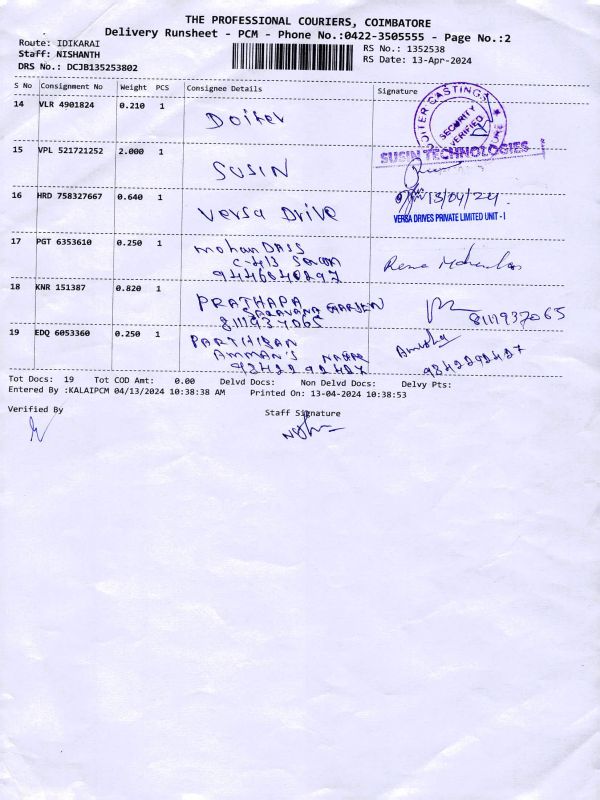 THE PROFESSIONAL COURIERS, COIMBATORE
Delivery Runsheet - PCM - Phone No.:0422-3505555 - Page No.:2
Route: IDIKARAI
RS No.: 1352538
Staff: NISHANTH
RS Date: 13-Apr-2024
DRS No.: DCJB135253802
S No Consignment No Weight PCS Consignee Details Signature
14 VLR 4901824 0.210 1 Doiter
CASTINGS
SECURITY
VERIFIED
15 VPL 521721252 2.000 1 SUSIN
SUSIN TECHNOLOGIES
16 HRD 758327667 0.640 1 Versa Drive
13/04/24.
VERSA DRIVES PRIVATE LIMITED UNIT - I
17 PGT 6353610 0.250 1 mohan DASS
C-413
18 KNR 151387 0.820 1 PRATHAPA
SARAVANA GARDEN
8111937065
8111937065
19 EDQ 6053360 0.250 1 PARTHIBAN
AMMAN'S NAGAR
9842292427
9842292427
Tot Docs: 19 Tot COD Amt: 0.00 Delvd Docs: Non Delvd Docs: Delvy Pts:
Entered By :KALAIPCM 04/13/2024 10:38:38 AM Printed On: 13-04-2024 10:38:53
Verified By Staff Signature